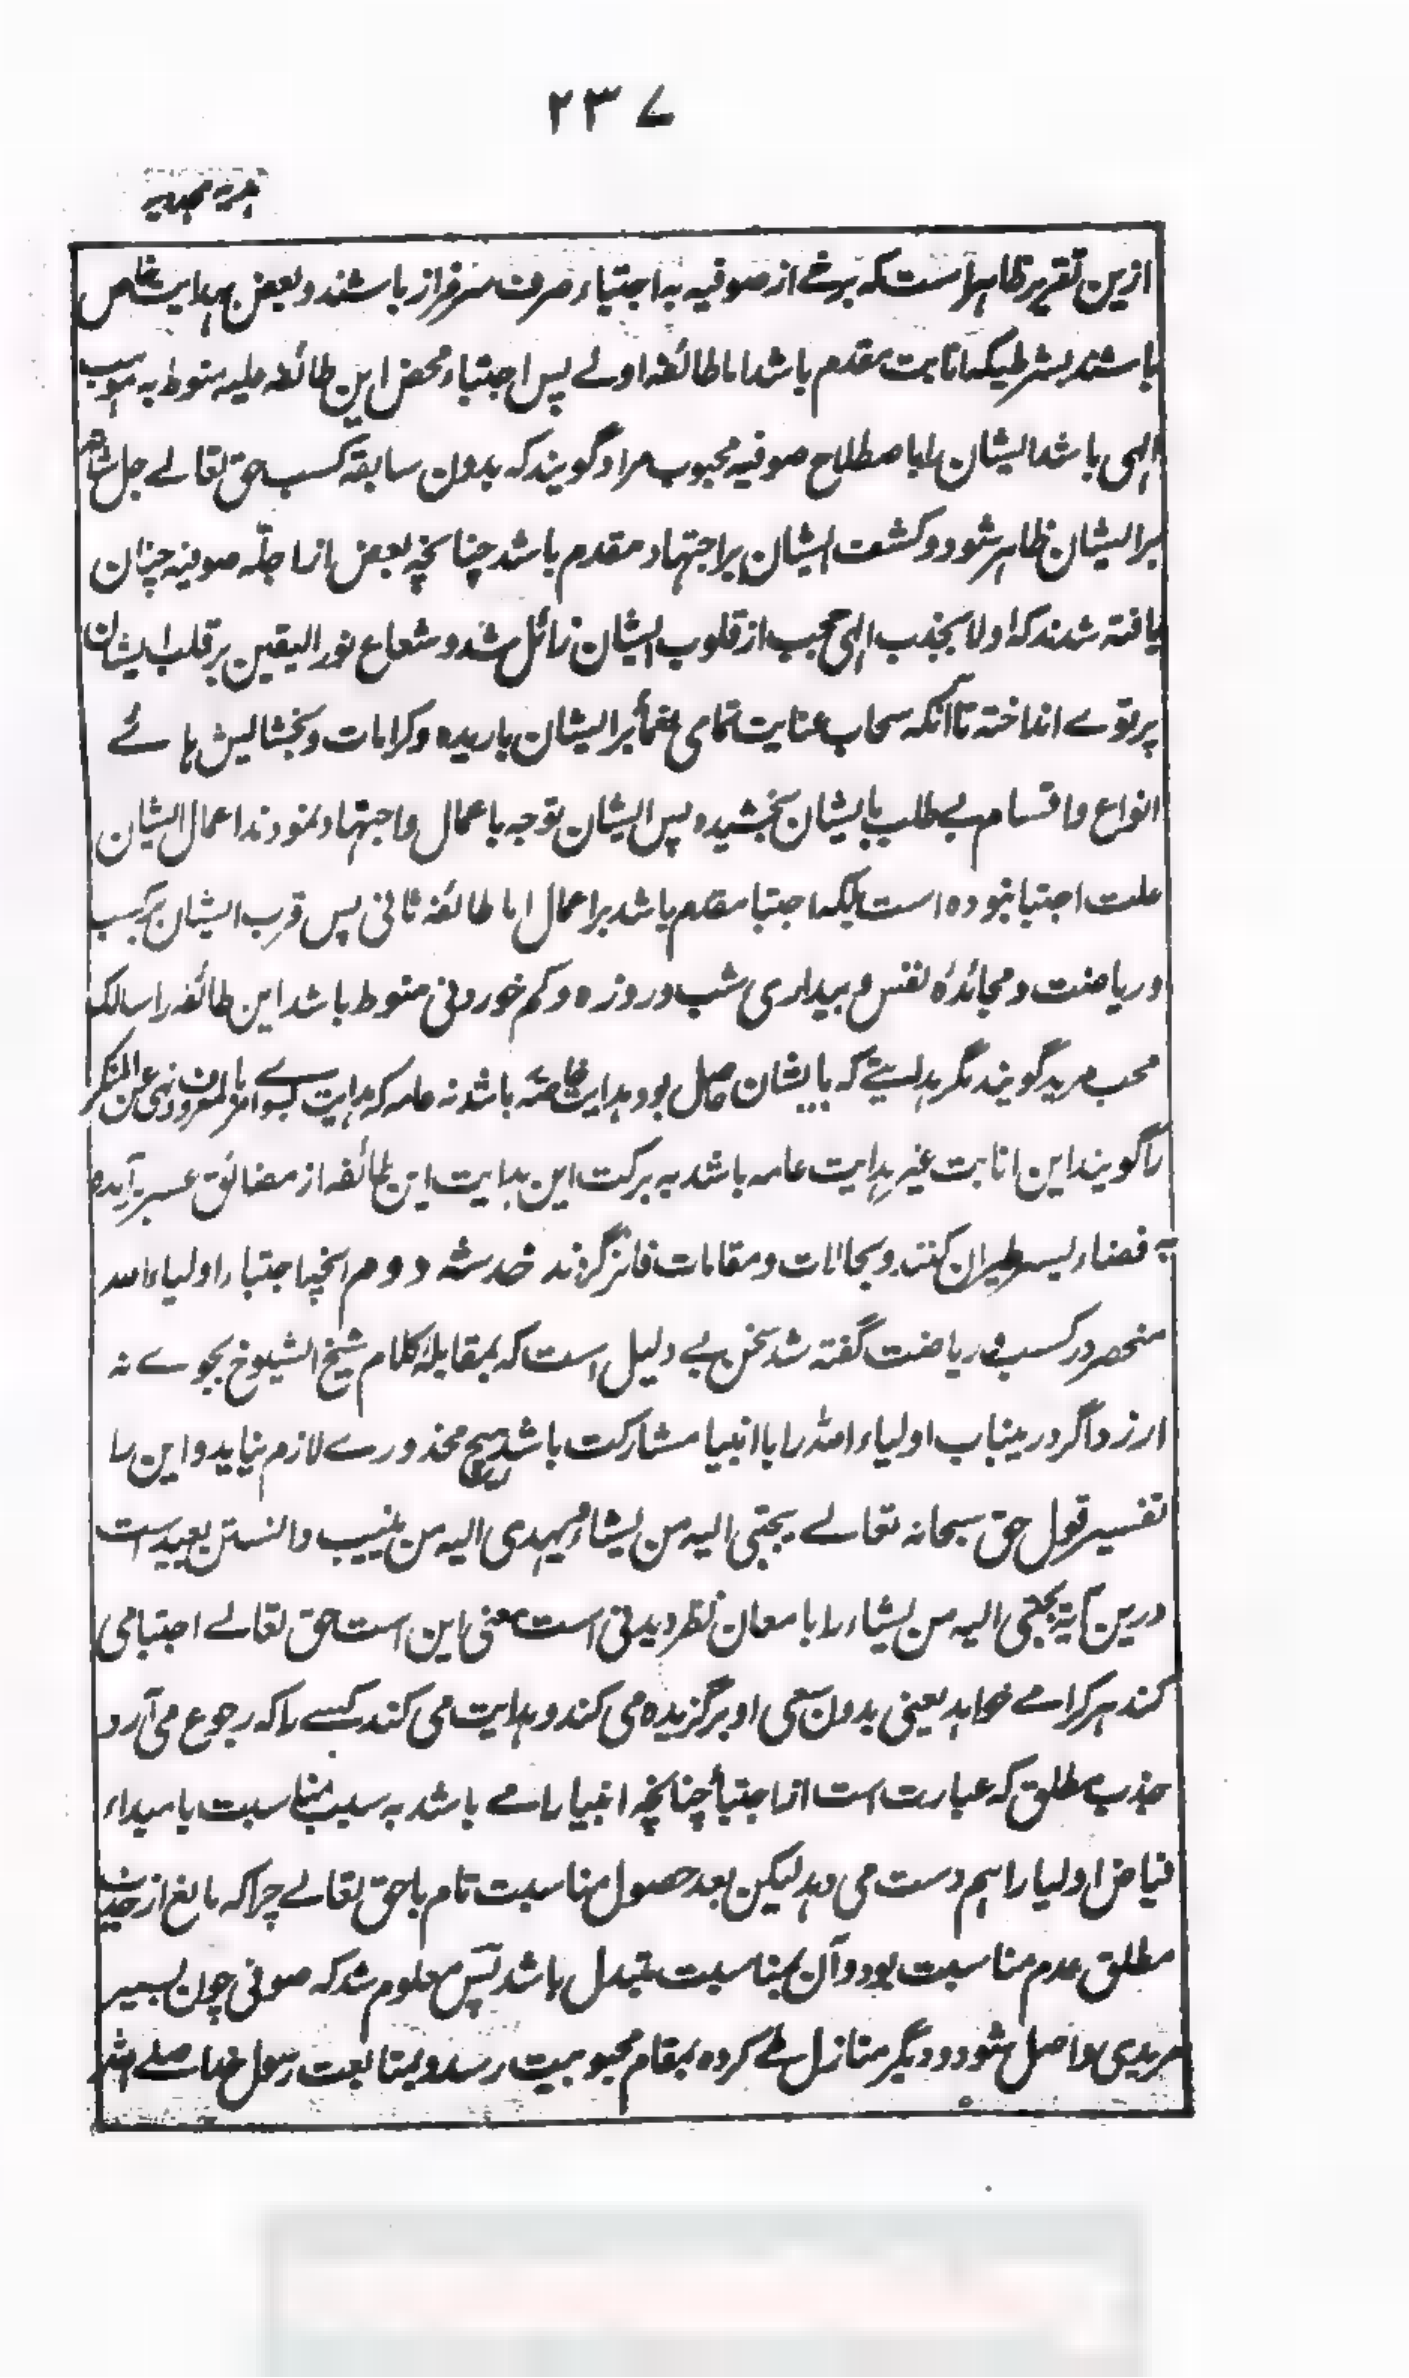 ۲۳۷
هدیه مجددیه
ازین تقریر ظاهر است که برخے از صوفیه به اجتباء صرف سرفراز باشند و بعض بهدایت خاص
باشند بشرطیکه انابت مقدم باشد اما طائفه اولے پس اجتباء محض این طائفه علیه منوط به
الهی باشد ایشان را باصطلاح صوفیه محبوب مراد گویند که بدون سابقه کسب حق تعالے جل شانه
بر ایشان ظاهر شود و کشف ایشان بر اجتهاد مقدم باشد چنانچه بعض از اجلّه صوفیه چنان
یافته شدند که اولا بجذب الهی حجب از قلوب ایشان زائل شد و شعاع نور الیقین بر قلب ایشان
پرتوے انداخته تا آنکه سحاب عنایت بر ایشان باریده و کرامات و بخشایش هائے
انواع و اقسام بے طلب بایشان بخشیده پس ایشان توجه باعمال و اجتهاد نمودند اعمال ایشان
علت اجتبا نبوده است بلکه اجتبا مقدم باشد بر اعمال اما طائفه ثانی پس قرب ایشان بر کسب
و ریاضت و مجائدهٔ نفس و بیداری شب و روزه و کم خوردنی منوط باشد این طائفه را سالک
محب مرید گویند مگر هدایتے که بایشان حاصل بود هدایت خاصّه باشد نه عامه که هدایت بسوے امر بالمعروف و نهی عن المنکر
را گویند این انابت غیر هدایت عامه باشد به برکت این هدایت این طائفه از مضائق عسر برآیده
به فضاء یسر طیران کنند و بحالات و مقامات فائز گردند خدشه دوم انچه اجتباء اولیاء الله
منحصر در کسب و ریاضت گفته شد سخن بے دلیل است که بمقابلهٔ کلام شیخ الشیوخ بجوے نه
ارزد و اگر درینباب اولیاء الله را با انبیا مشارکت باشد هیچ محذورے لازم نیاید و این را
تفسیر قول حق سبحانه تعالے یجتبی الیه من یشاء و یهدی الیه من ینیب دانستن بعید است
درین آیة یجتبی الیه من یشاء را بامعان نظر دیدنی است معنی این است حق تعالے اجتبا می
کند هر کرا مے خواهد یعنی بدون سعی او برگزیده می کند و هدایت می کند کسے را که رجوع می آرد
جذب مطلق که عبارت است از اجتبأ چنانچه انبیا را مے باشد به سبب مناسبت با مبداء
فیاض اولیا را هم دست می دهد لیکن بعد حصول مناسبت تام با حق تعالے چرا که مانع از جذب
مطلق عدم مناسبت بود و آن بمناسبت مبدل باشد پس معلوم شد که صوفی چون بسیر
مریدی واصل شود و دیگر منازل طے کرده بمقام محبوبیت رسد و بمتابعت رسول خدا صلے الله